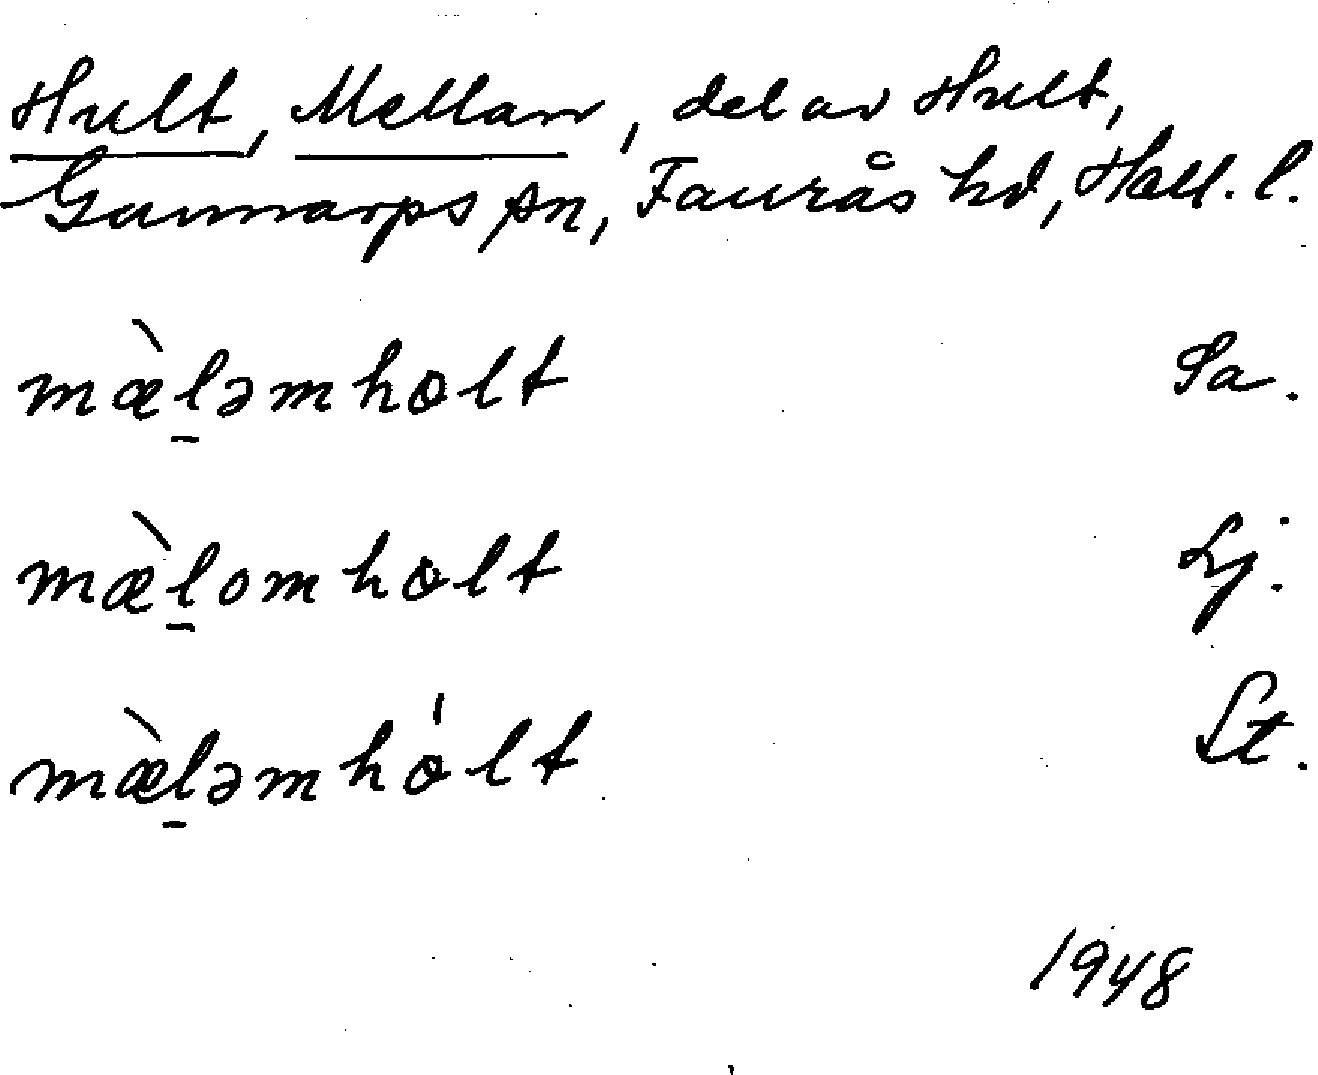 Hult, Mellan, del av Hult,
Gunnarps sn, Faurås hd, Hall. l.
mæ̀l̠əmhɷlt Sa.
mæ̀l̠omhɷlt Lj.
mæ̀l̠əmhɷ́lt St.
1948